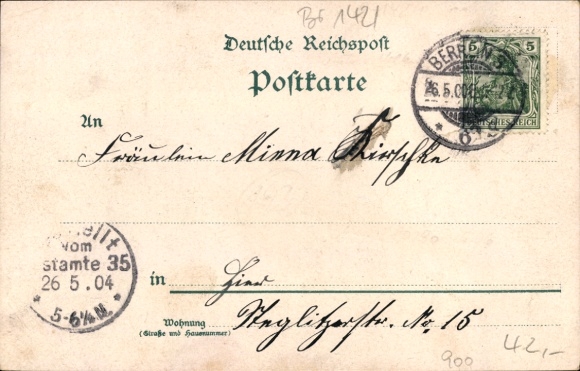 Br 1421
Deutsche Reichspost
Postkarte
BERLIN
26.5.04
5 5
DEUTSCHES REICH
An
Fräulein Minna Kirschke
Bestellt
vom
Postamte 35
26.5.04
5-6½N.
in Hier
Wohnung
(Straße und Hausnummer)
Steglitzerstr. No. 15
900
42,-